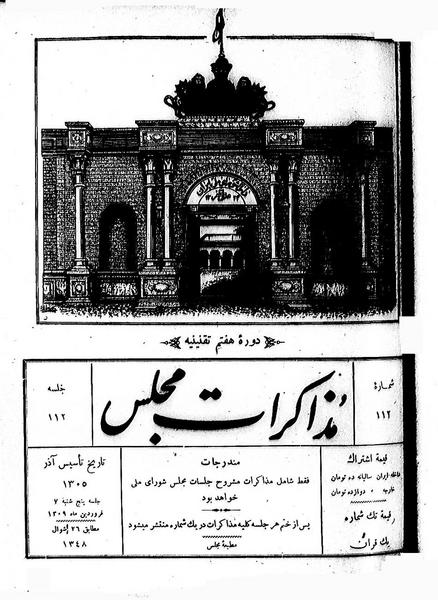 دورهٔ هفتم تقنینیه
شمارهٔ
۱۱۲
مذاکرات مجلس
جلسه
۱۱۲
قیمة اشتراك
داخله ایران سالیانه ده تومان
خارجه » دوازده تومان
قیمة تك شماره
یك قران
مندرجات
فقط شامل مذاکرات مشروح جلسات مجلس شورای ملی
خواهد بود
پس از ختم هر جلسه کلیه مذاکرات در یك شماره منتشر میشود
مطبعهٔ مجلس
تاریخ تأسیس آذر
۱۳۰۵
جلسه پنج شنبه ۷
فروردین ماه ۱۳۰۹
مطابق ۲۶ شوال
۱۳۴۸